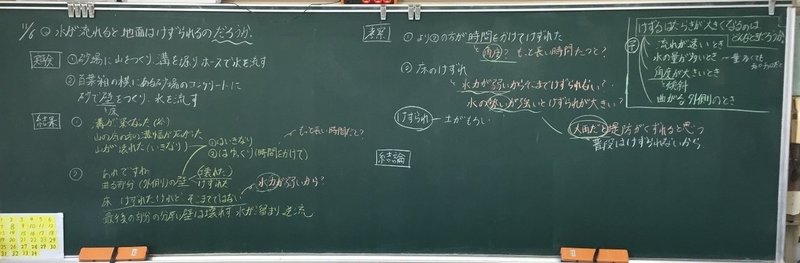 11/6 水が流れると地面はけずられるのだろうか。
実験
① 砂場に山をつくり、溝を掘り ホースで水を流す
② 百葉箱の横にある砂場のコンクリートに
砂で壁をつくり、水を流す
結果
①
溝が深くなった
山が壊れた(いきなり)
①はいきなり
②はゆっくり(時間をかけて)
もっと長い時間だと?
②
曲る部分(外側)の壁 けずれた
(壊れた)
床 けずれたけれど そこまでではない
水力が弱いから?
最後の部分の 壁は壊れず 水が溜まり 逆流
① より②の方が時間をかけてけずれた
角度? もっと長い時間だと?
② 床のけずれ
水力が弱いからそこまでけずられない?
水の勢いが強いとけずられ方が大きい?
けずられ ― 土がもろい
大雨だと堤防がくずれると思う
普段はけずられないから
結論
けずるはたらきが大きくなるのは
どんなときだろうか
流れが速いとき
水の量が多いとき
角度が大きいとき
傾斜
曲がる外側のとき